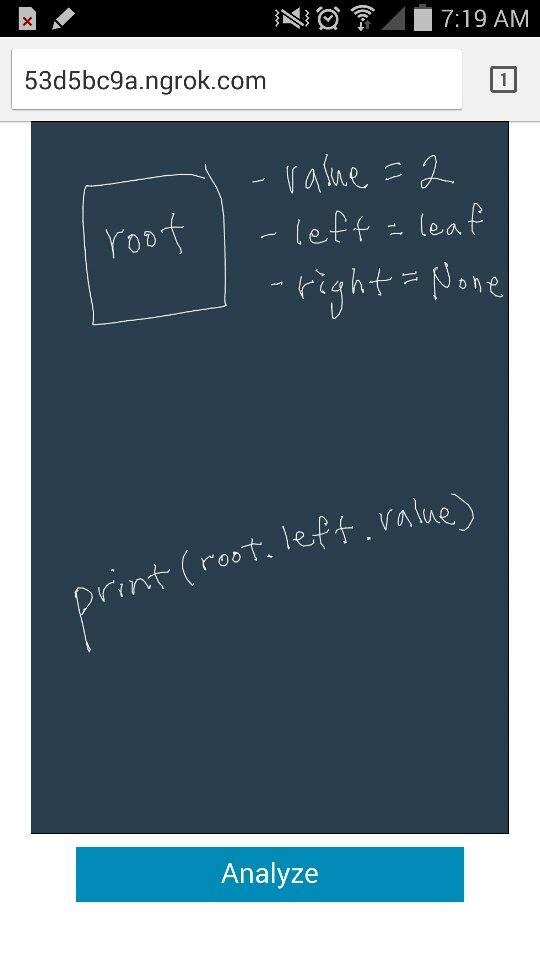 7:19 AM
53d5bc9a.ngrok.com
1
root
- value = 2
- left = leaf
- right = None
print(root.left.value)
Analyze